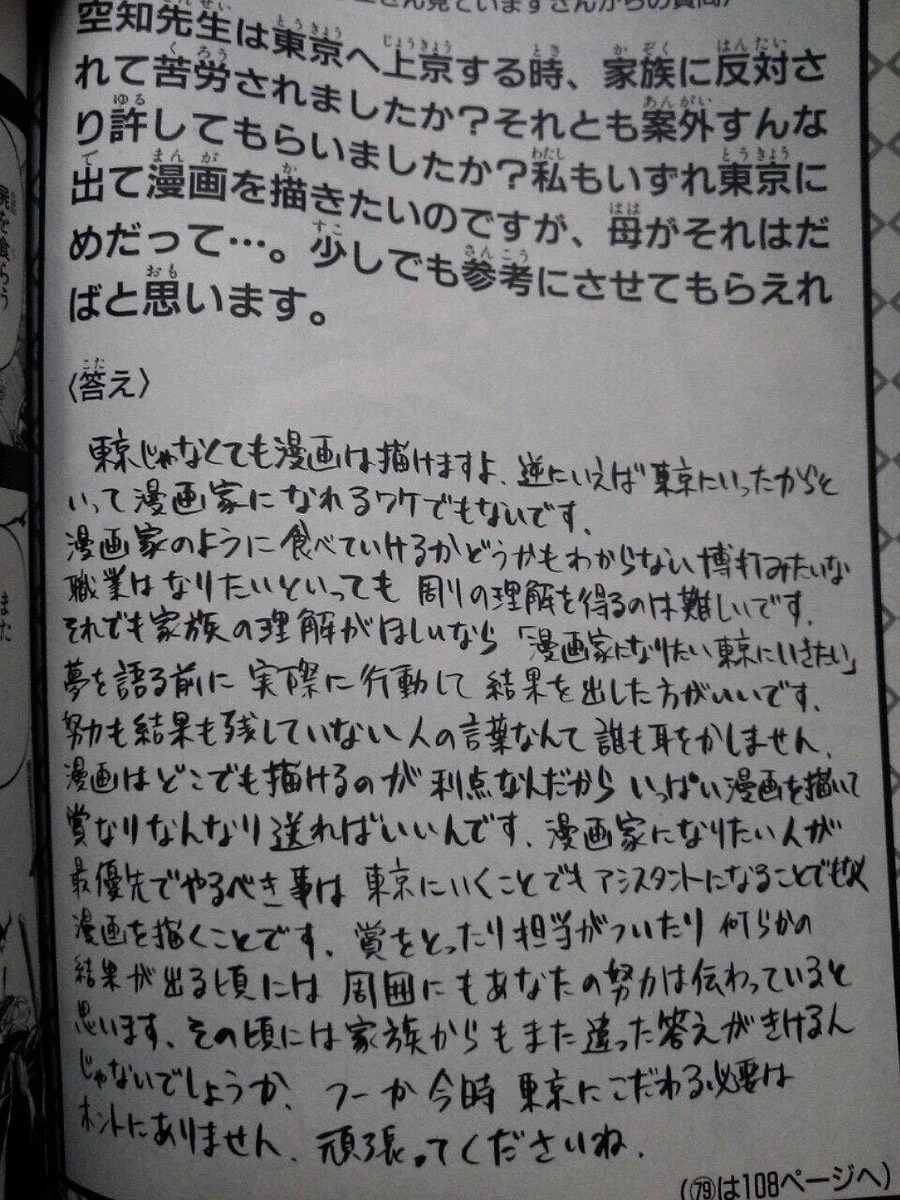 さん見ていますさんからの質問）
空知先生は東京へ上京する時、家族に反対さ
れて苦労されましたか？それとも案外すんな
り許してもらいましたか？私もいずれ東京に
出て漫画を描きたいのですが、母がそれはだ
めだって…。少しでも参考にさせてもらえれ
ばと思います。
〈答え〉
東京じゃなくても漫画は描けますよ、逆にいえば東京にいったからと
いって漫画家になれるワケでもないです、
漫画家のように食べていけるかどうかもわからない博打みたいな
職業はなりたいといっても周りの理解を得るのは難しいです、
それでも家族の理解がほしいなら「漫画家になりたい東京にいきたい」
夢を語る前に実際に行動して結果を出した方がいいです、
努力も結果も残していない人の言葉なんて誰も耳をかしません、
漫画はどこでも描けるのが利点なんだからいっぱい漫画を描いて
賞なりなんなり送ればいいんです、漫画家になりたい人が
最優先でやるべき事は東京にいくことでもアシスタントになることでもなく
漫画を描くことです、賞をとったり担当がついたり何らかの
結果が出る頃には周囲にもあなたの努力は伝わっていると
思います、その頃には家族からもまた違った答えがきけるん
じゃないでしょうか、つーか今時東京にこだわる必要は
ホントにありません、頑張ってくださいね、
（79は108ページへ）
を喰らう
また